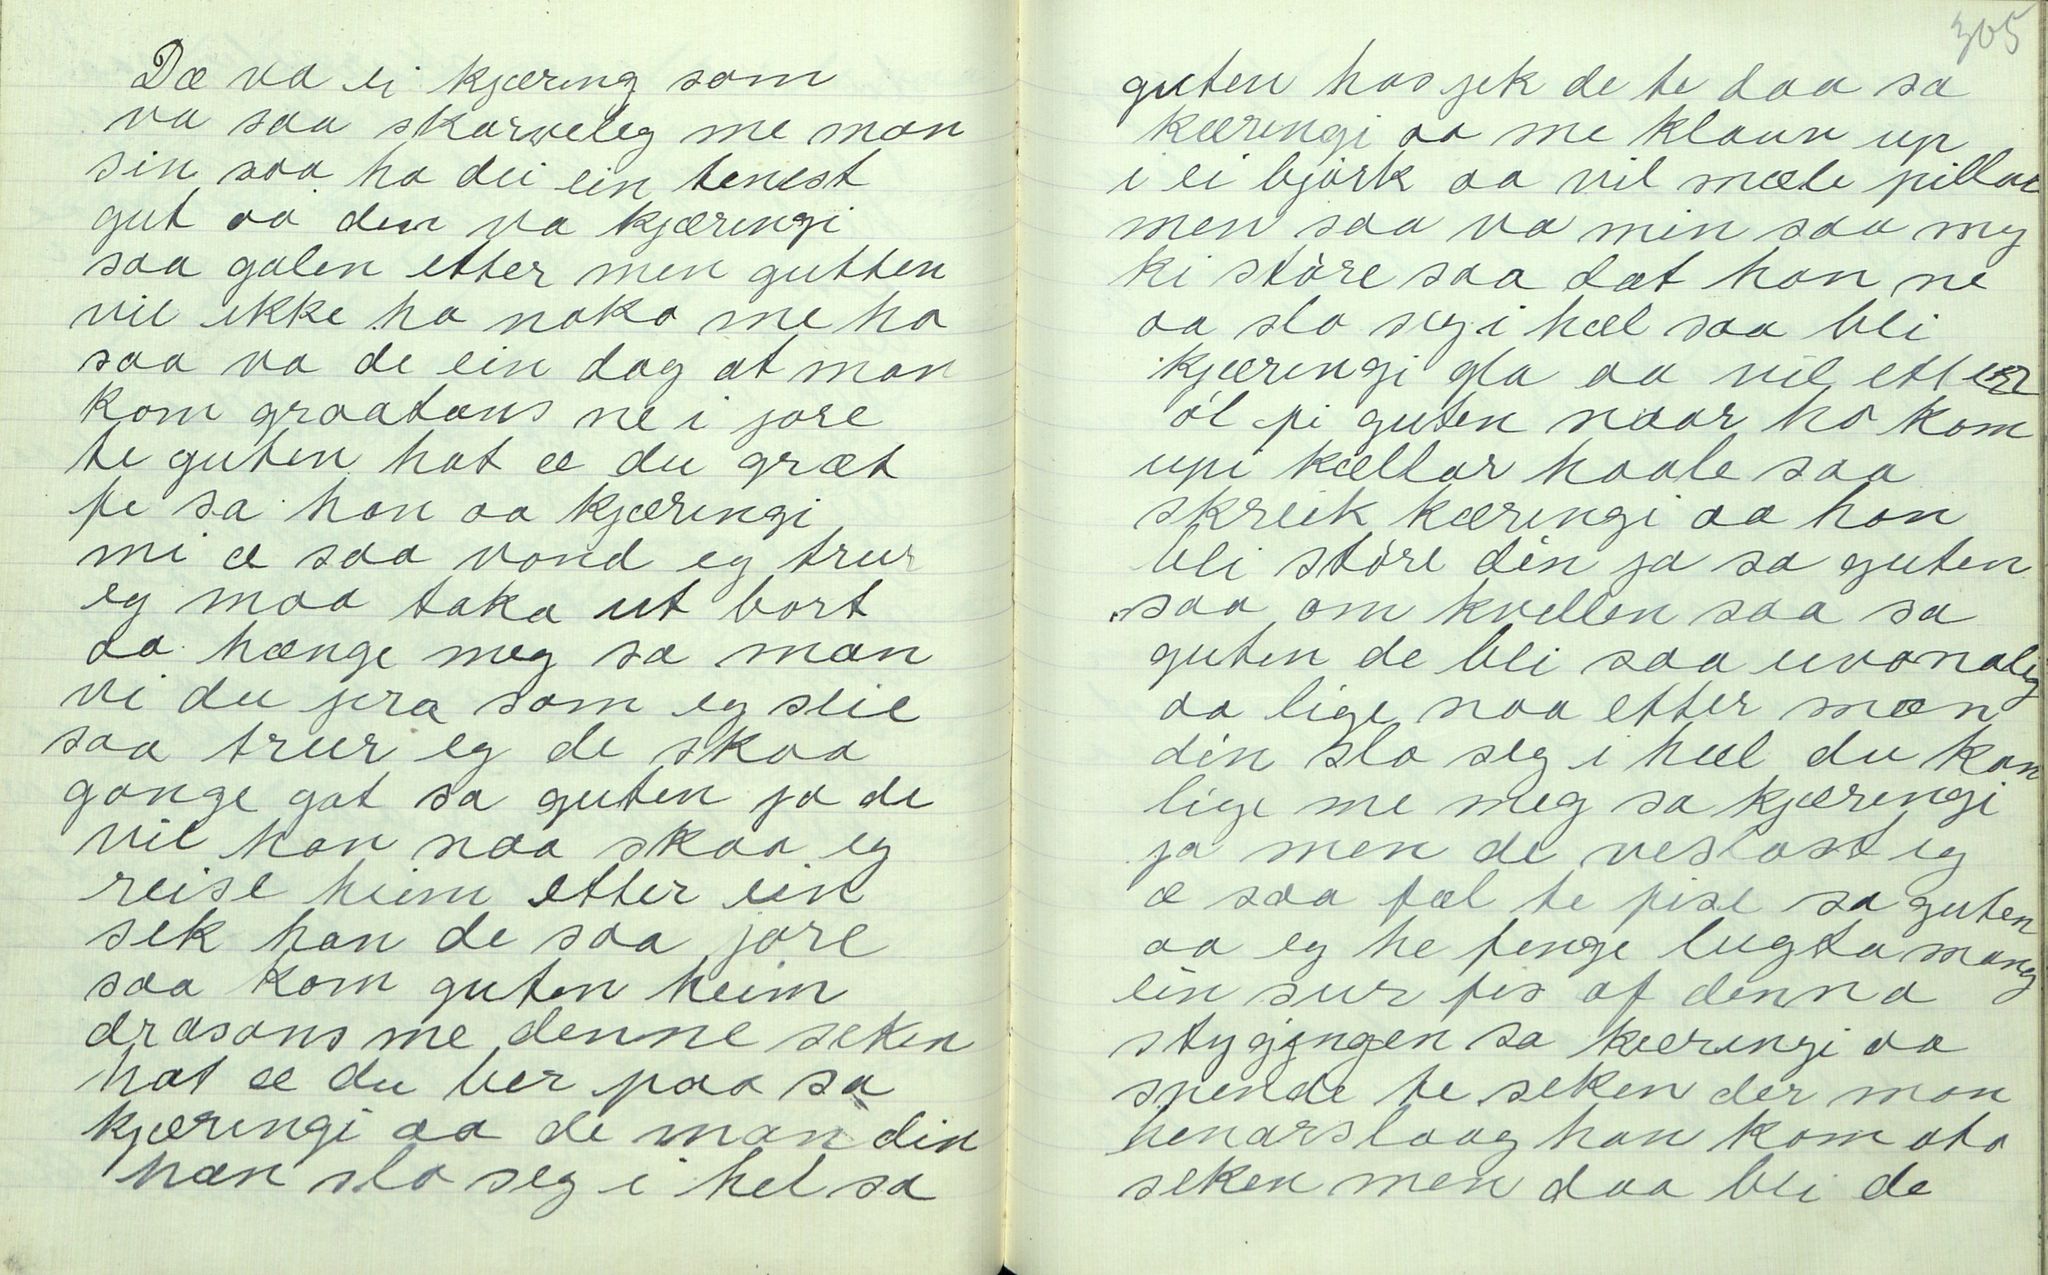 Dæ va ei kjæring som
va saa skarveleg me man
sin saa ha dei ein tenest
gut aa den va kjæringi
saa galen etter men gutten
vil ikke ha noko me ho
saa va de ein dag at man
kom graatans ne i jore
te guten hot æ du græt
fe sa han aa kjæringi
mi æ saa vond eg trur
eg maa taka ut bort
aa hænge meg sa man
vi du jera som eg seie
saa trur eg de skaa
gange gat sa guten ja de
vil han naa skaa eg
reise heim etter ein
sek han de saa jore
saa kom guten heim
drasans me denne seken
hot æ du ber paa sa
kjæringi aa de man din
han slo seg i hel sa
305
guten hosjek de te daa sa
kæringi aa me klauv up
i ei bjørk aa vil mæle pillar
men saa va min saa my
ki støre saa dat han ne
aa slo seg i hæl saa blei
kjæringi gla aa vil etter
øl pi guten naar ho kom
upi kællar haale saa
skreik kæringi aa han
bli støre din ja sa guten
saa om kvellen saa sa
guten de bli saa uvonaleg
aa lige naa etter man
din slo seg i hæl du kan
lige me meg sa kjæringi
ja men de veslast eg
æ saa fæl te fise sa guten
aa eg he fenge lugta mang
ein sur fis af denna
styggingen sa kæringi aa
spende te seken der man
henar slaag han kom ato
seken men daa bli de